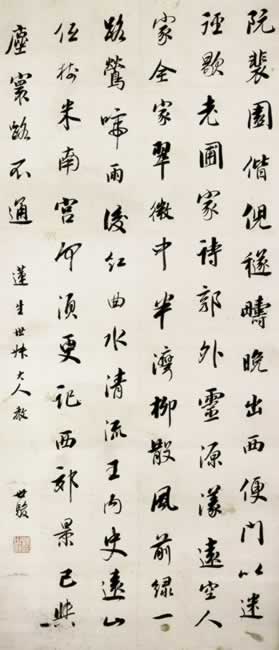 阮裴園偕倪穟疇晚出西便門以迷
徑歇老圃家詩郭外靈源漾遠空人
家全家翠微中半灣柳散風前綠一
路鶯啼雨後紅曲水清流王內史遠山
位樹米南宮何須更記西郊景已與
塵寰路不通
蓮生世大人教
世駿